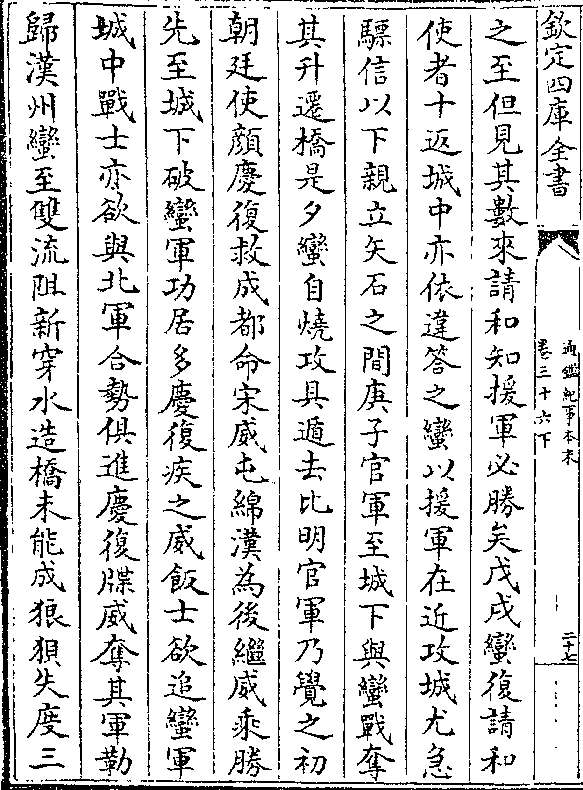 欽定四庫全書
通鑑紀事本末
卷三十六下
二十七
之至但見其數來請和知援軍必勝矣戊戌蠻復請和
使者十返城中亦依違答之蠻以援軍在近攻城尤急
驃信以下親立矢石之間庚子官軍至城下與蠻戰奪
其升遷橋是夕蠻自燒攻具遁去比明官軍乃覺之初
朝廷使顔慶復救成都命宋威屯綿漢為後繼威乘勝
先至城下破蠻軍功居多慶復疾之威飯士欲追蠻軍
城中戰士亦欲與北軍合勢俱進慶復牒威奪其軍勒
歸漢州蠻至雙流阻新穿水造橋未能成狼狽失度三